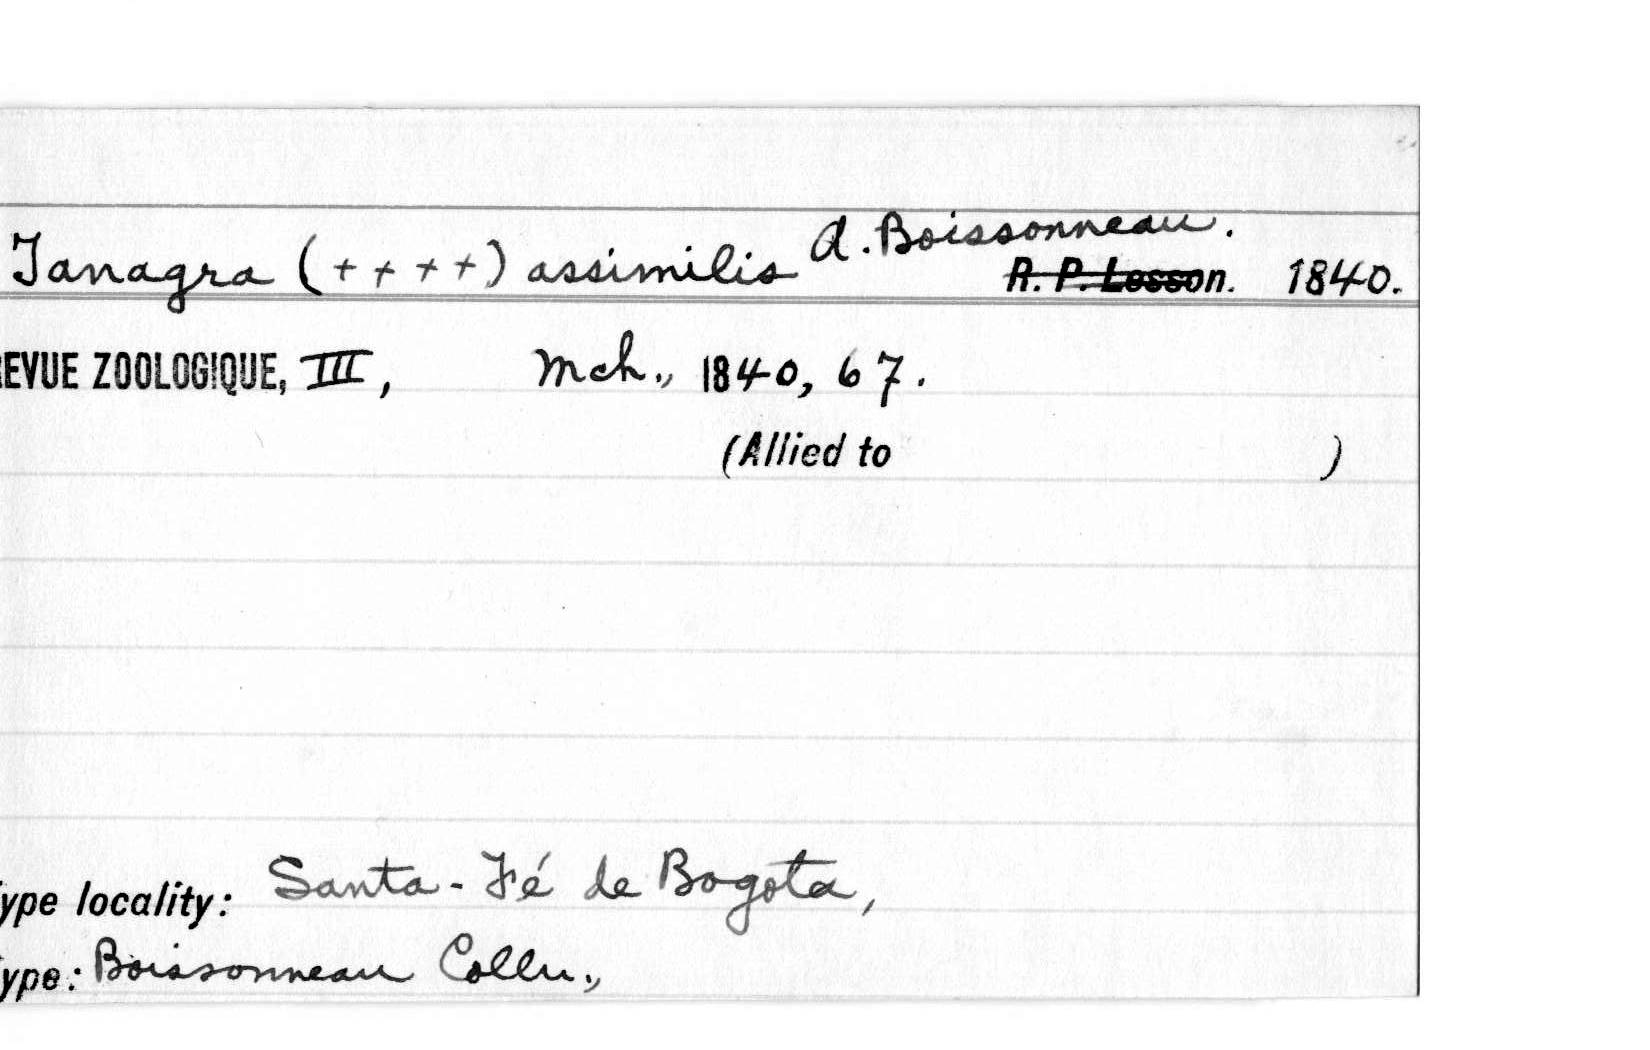 Tanagra (++++) assimilis A. Boissonneau.
R. P. Lesson. 1840.
REVUE ZOOLOGIQUE, III, Mch., 1840, 67.
(Allied to )
ype locality: Santa-Fé de Bogota,
ype: Boissonneau Colln.,